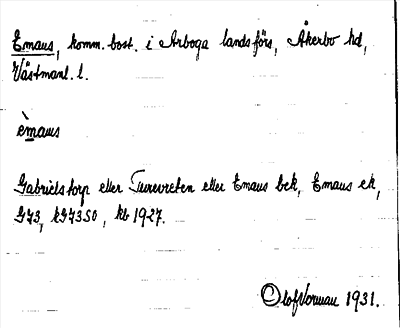 Emaus, komm. bost. i Arboga landsförs, Åkerbo hd,
Västmanl. l.
èmaus
Gabrielstorp eller Turevreten eller Emaus bek, Emaus ek,
G73, kG73SO, kb 1927.
Olof Norman 1931.